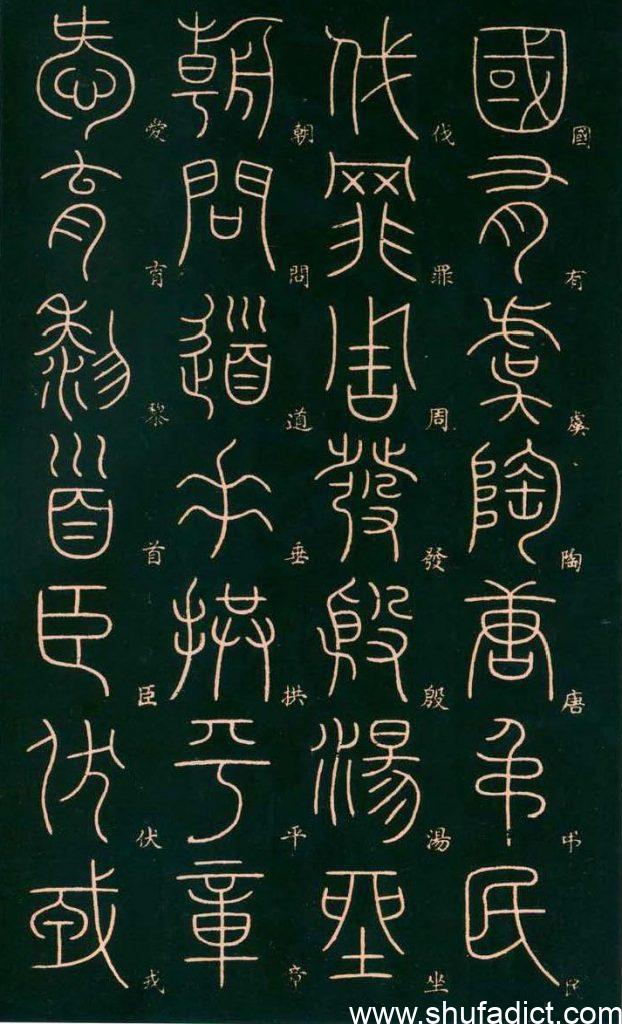 國有虞陶唐弔民
國有虞陶唐弔民
伐罪周發殷湯坐
伐罪周發殷湯坐
朝問道垂拱平章
朝問道垂拱平章
愛育黎首臣伏戎
愛育黎首臣伏戎
www.shufadict.com